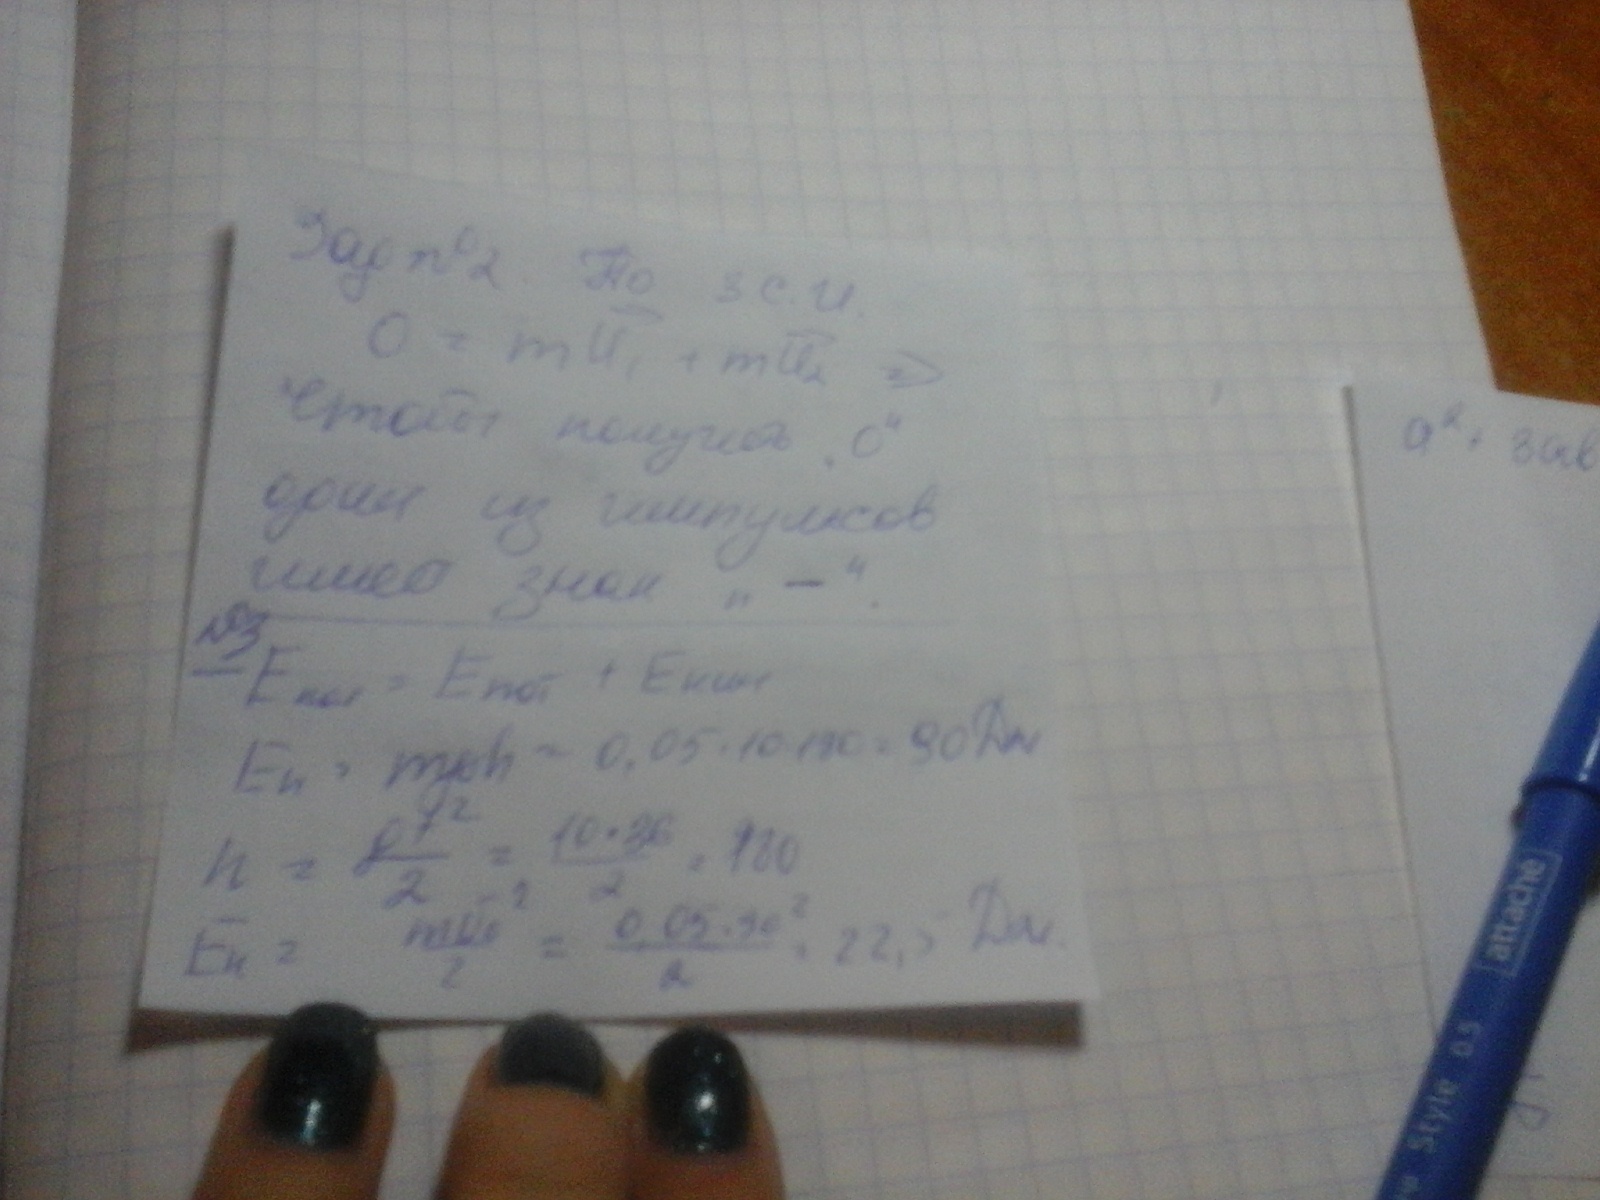 Зад №2. По з с.и.
0 = mU₁ + mU₂ ⇒
Чтобы получить „0“
один из импульсов
имеет знак „—“.
№3
Eпол = Eпот + Eкин
Eп = mgh = 0,05·10·180 = 90 Дж
h = gt²/2 = 10·36/2 = 180
Eк = mU₀²/2 = 0,05·30²/2 = 22,5 Дж.
a² + 3ab
attache
Style 0.5